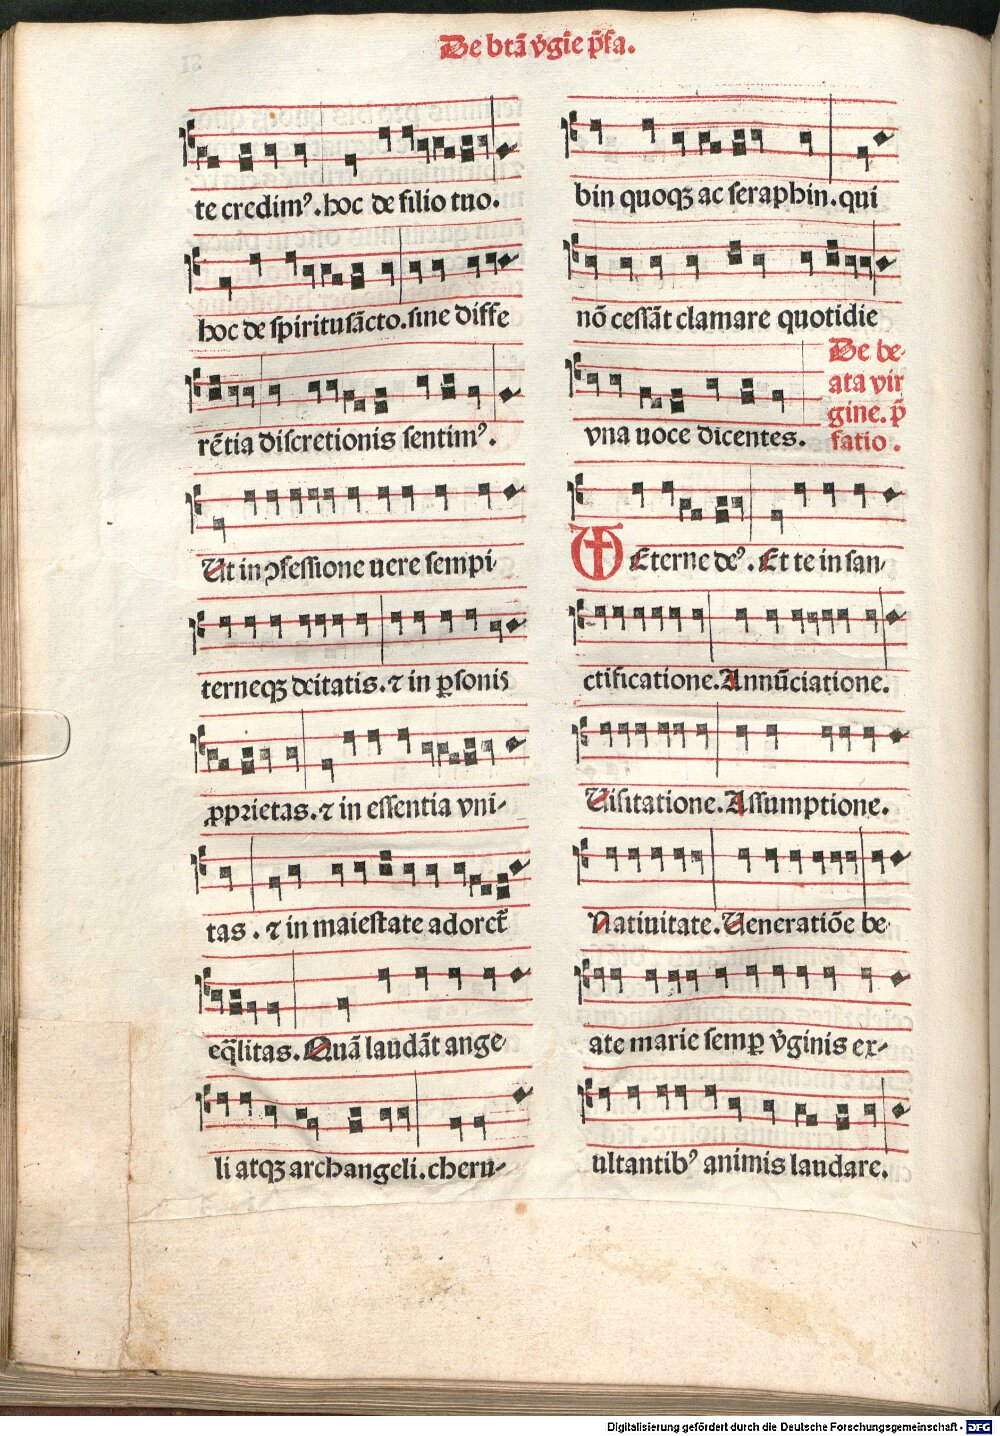 De btā v̄gīe p̄fa.
te credimꝰ. hoc de filio tuo.
hoc de spiritusācto. sine diffe
rētia discretionis sentimꝰ.
Ut in ꝯfessione uere sempi-
terneqꝫ deitatis. ⁊ in ꝑsonis
ꝓprietas. ⁊ in essentia vni-
tas. ⁊ in maiestate adoret᷑
eq̄litas. Quā laudāt ange-
li atqꝫ archangeli. cheru-
bin quoqꝫ ac seraphin. qui
nō cessāt clamare quotidie
vna uoce dicentes.
De be-
ata vir
gine. p̄
fatio.
Eterne deꝰ. Et te in san-
ctificatione. Annūciatione.
Uisitatione. Assumptione.
Natiuitate. Ueneratiōe be-
ate marie semꝑ v̄ginis ex-
ultantibꝰ animis laudare.
Digitalisierung gefördert durch die Deutsche Forschungsgemeinschaft - DFG